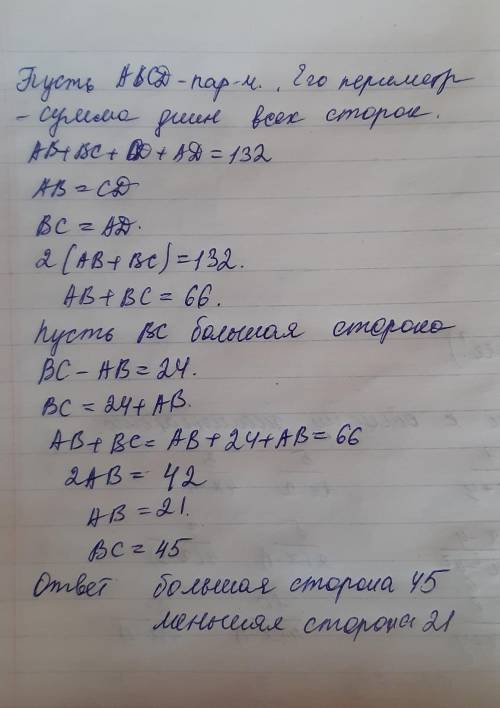 Пусть ABCD - пар-м. Его периметр
- сумма длин всех сторон.
AB + BC + CD + AD = 132
AB = CD
BC = AD.
2(AB + BC) = 132.
AB + BC = 66.
Пусть BC большая сторона
BC - AB = 24.
BC = 24 + AB.
AB + BC = AB + 24 + AB = 66
2AB = 42
AB = 21.
BC = 45
Ответ большая сторона 45
меньшая сторона 21